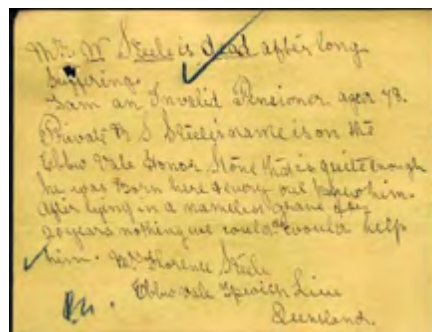 Mr. W Steele is dead after long
suffering.
I am an Invalid Pensioner aged 78.
Private R S Steele's name is on the
Ebbw Vale Honor Stone that is quite enough
he was born here & every one knew him.
After lying in a nameless grave for
20 years nothing we could would help
him. Mrs Florence Steele
Ebbw Vale Ipswich Line
Queensland.